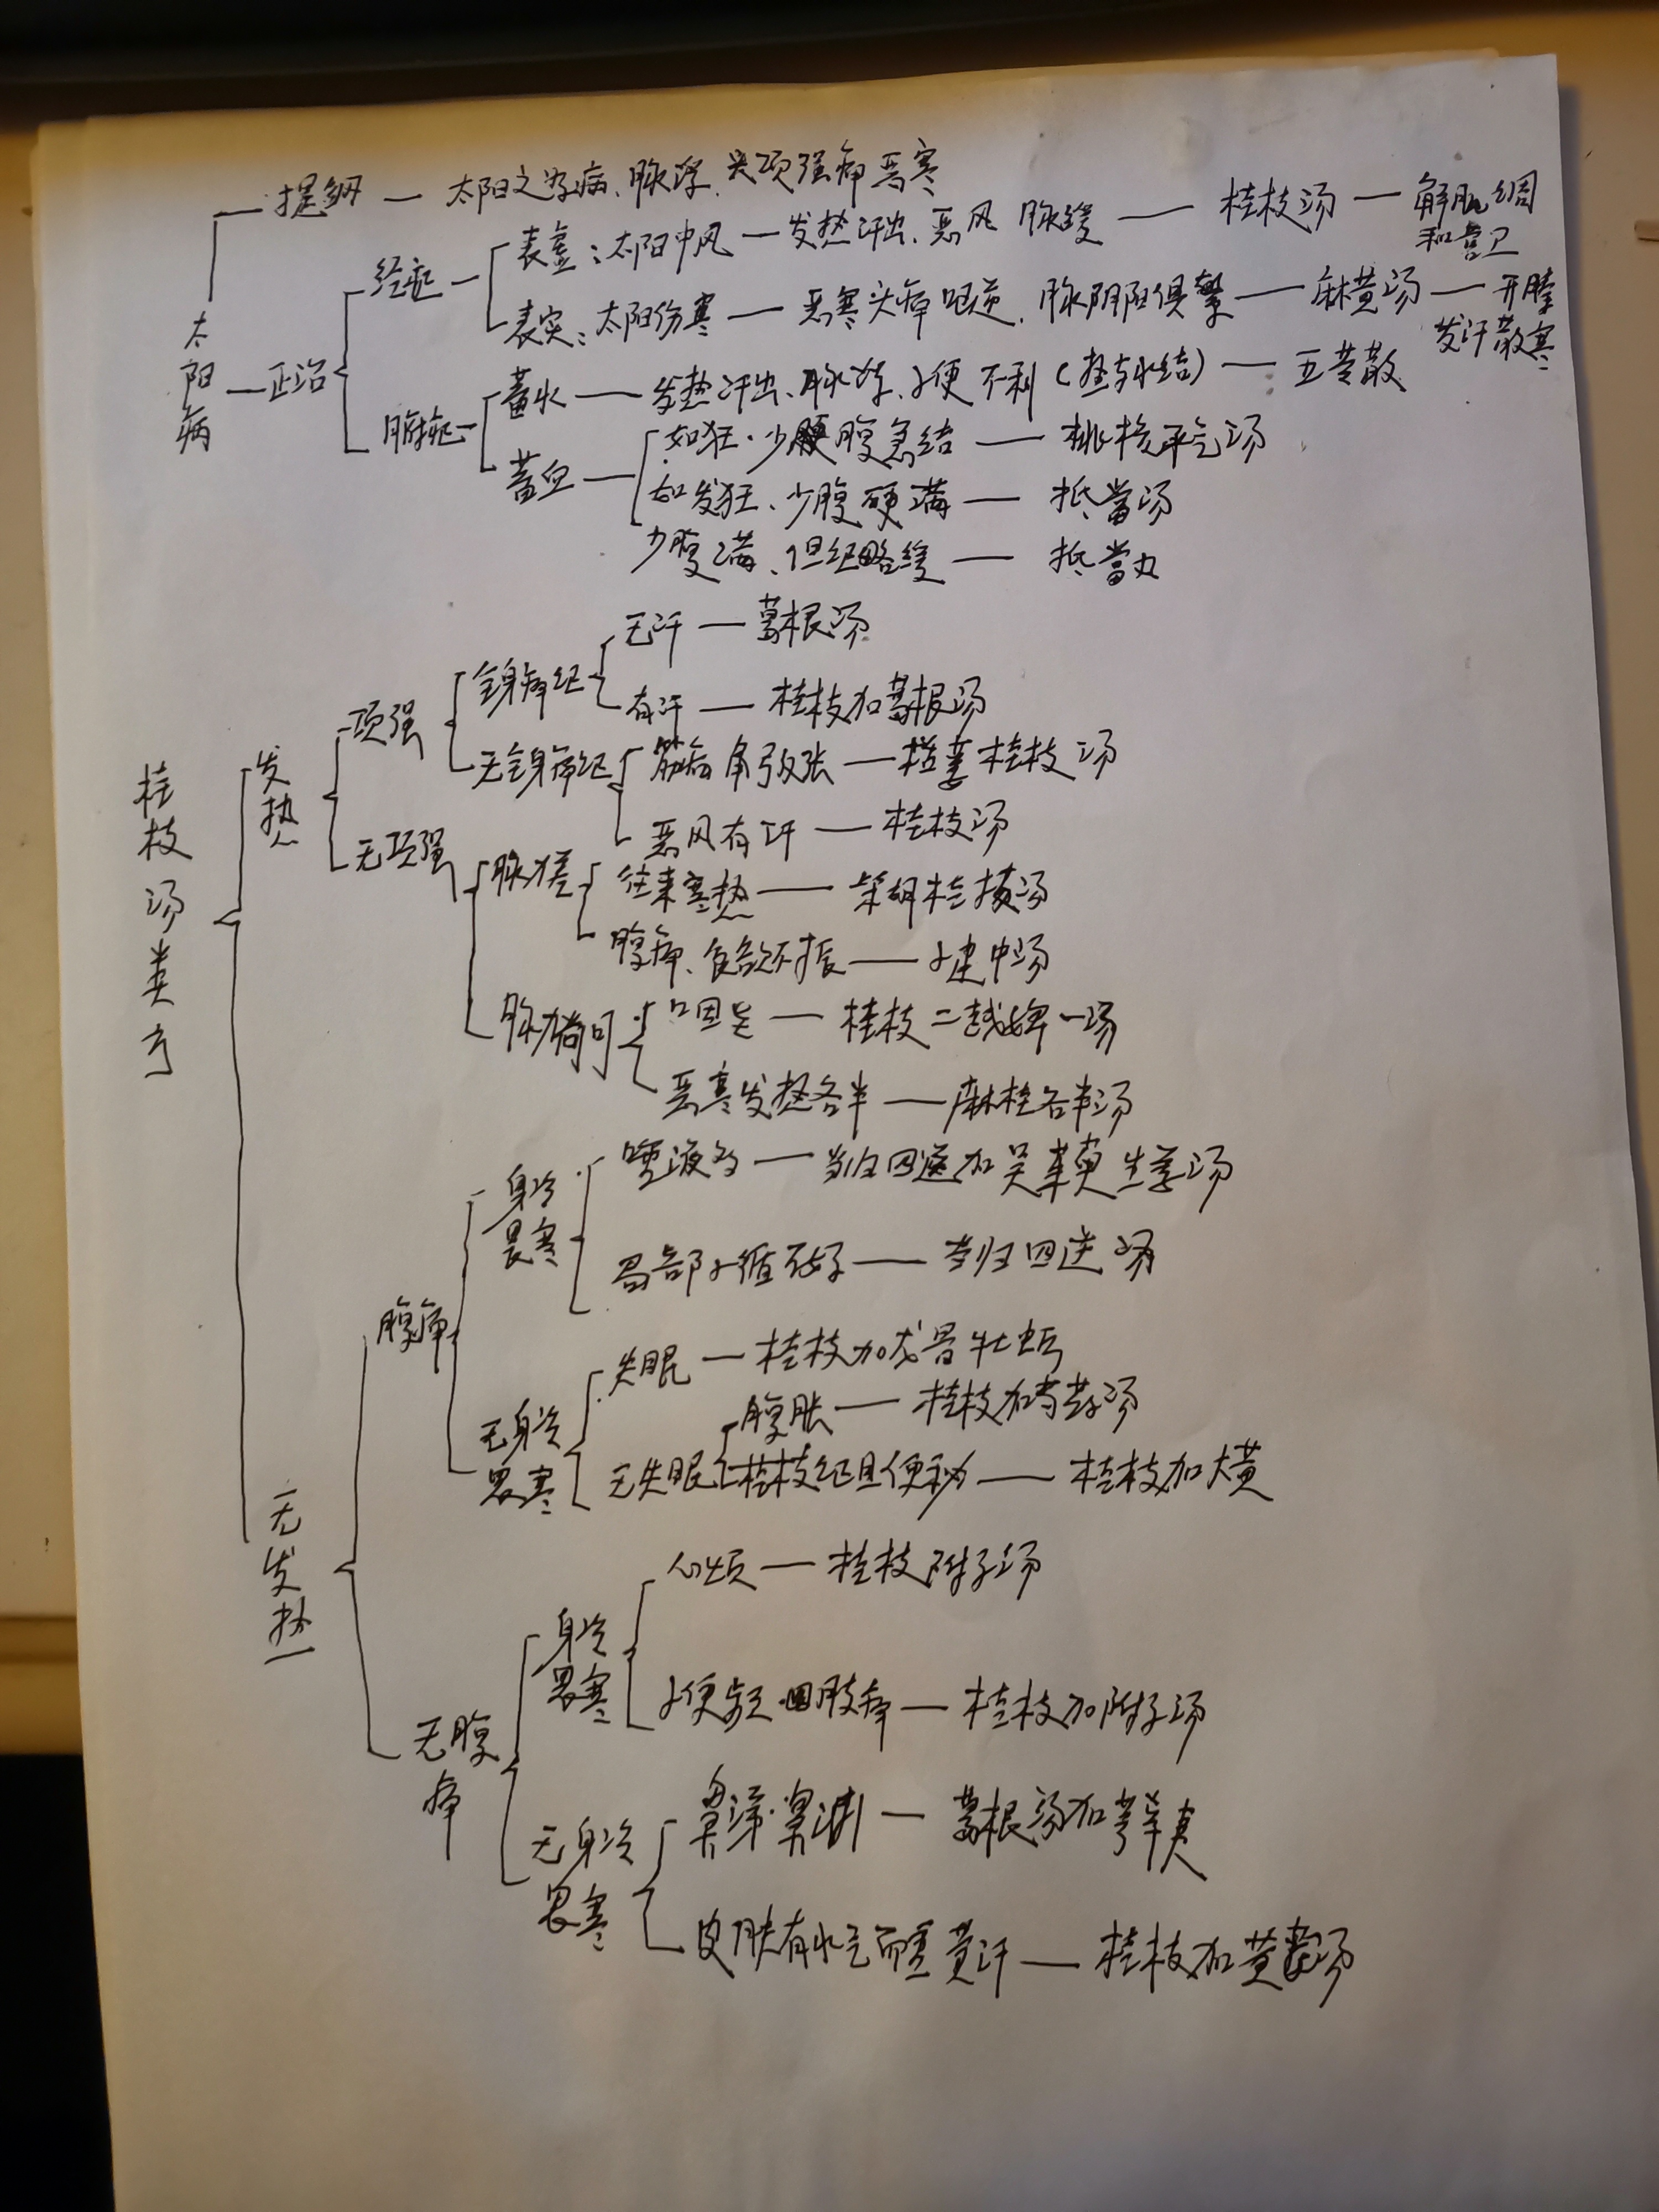 太阳病
提纲 — 太阳之为病、脉浮、头项强痛恶寒
正治
经证
表虚：太阳中风 — 发热汗出、恶风 脉缓 — 桂枝汤 — 解肌
和营卫
表实：太阳伤寒 — 恶寒头痛 脉阴阳俱紧 — 麻黄汤 — 开腠
发汗散寒
腑证
蓄水 — 发热汗出、脉浮、小便不利（热与水结） — 五苓散
蓄血
如狂·少腹急结 — 桃核承气汤
如发狂、少腹硬满 — 抵當汤
少腹满、但证略缓 — 抵當丸
桂枝汤类方
发热
项强
全身痛证
无汗 — 葛根汤
有汗 — 桂枝加葛根汤
无全身痛证
筋病角弓反张 — 栝蒌桂枝汤
恶风有汗 — 桂枝汤
无项强
脉力差
往来寒热 — 柴胡桂枝汤
腹痛、食欲不振 — 小建中汤
脉力尚可
口固定 — 桂枝二越婢一汤
恶寒发热各半 — 麻桂各半汤
无发热
腹痛
身冷
畏寒
唾液多 — 当归四逆加吴茱萸生姜汤
局部循不好 — 当归四逆汤
无身冷
畏寒
失眠 — 桂枝加龙骨牡蛎
无失眠
腹胀 — 桂枝加芍药汤
桂枝证且便秘 — 桂枝加大黄
无腹
痛
身冷
畏寒
心烦 — 桂枝附子汤
小便频·四肢痛 — 桂枝加附子汤
无身冷
畏寒
鼻涕·鼻渊 — 葛根汤加芎辛夷
皮肤有水气而重黄汗 — 桂枝加黄芪汤